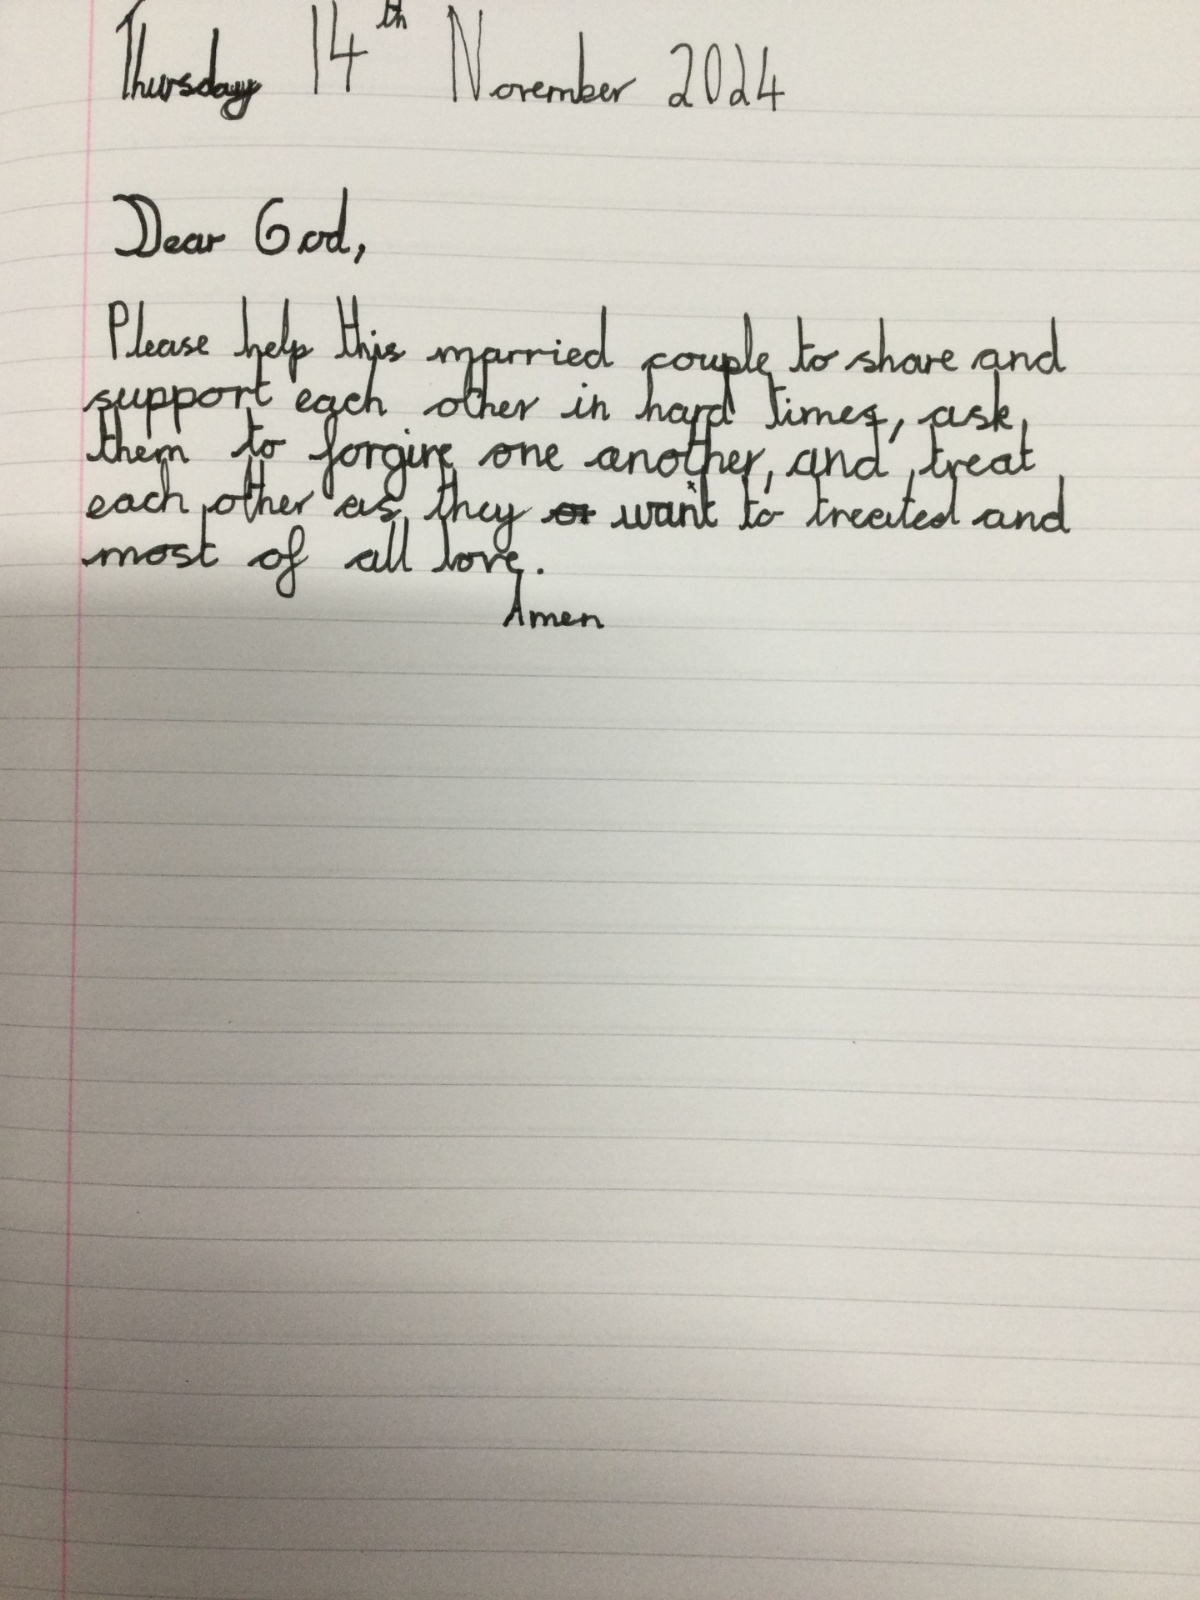 Thursday 14th November 2024
Dear God,
Please help this married couple to share and
support each other in hard times, ask
them to forgive one another, and treat
each other as they want to treated and
most of all love.
Amen